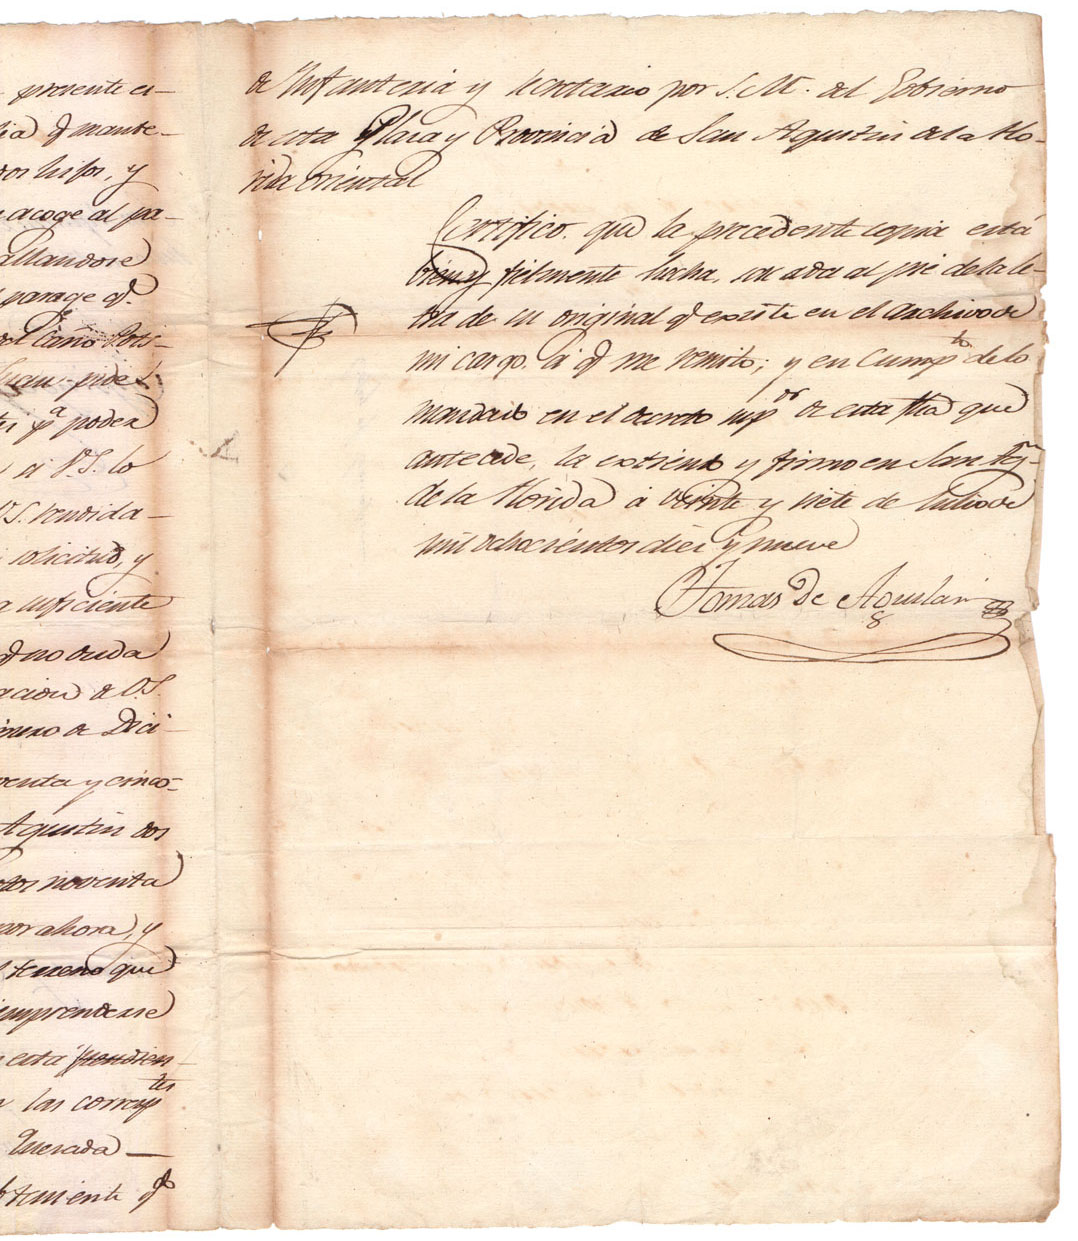 presente es-
dia q mante-
dos hijos, y
acoge al pa-
allandose
parage q.
Caño
Juan pide
pª poder
a V.S. lo
V.S. rendida-
solicitud, y
suficiente
q no duda
acion de V.S.
primero de Dici-
venta y cinco-
Agustin dos
noventa
por ahora, y
terreno que
emprendiese
esta
tes
las corresp
Quesada —
teniente qº
de Infanteria y Secretario por S.M. del Gobierno
de esta Plaza y Provincia de San Agustin de la Flo-
rida oriental
Certifico que la precedente copia está
bien y fielmente hecha, sacada al pie de la le-
tra de su original q existe en el archivo de
mi cargo á q me remito; y en Cumpto de lo
mandado en el decreto de esta fha que
antecede, la extiendo y firmo en San Agn
de la Florida á veinte y siete de Julio de
mil ochocientos diez y nueve
Tomas De Aguilar